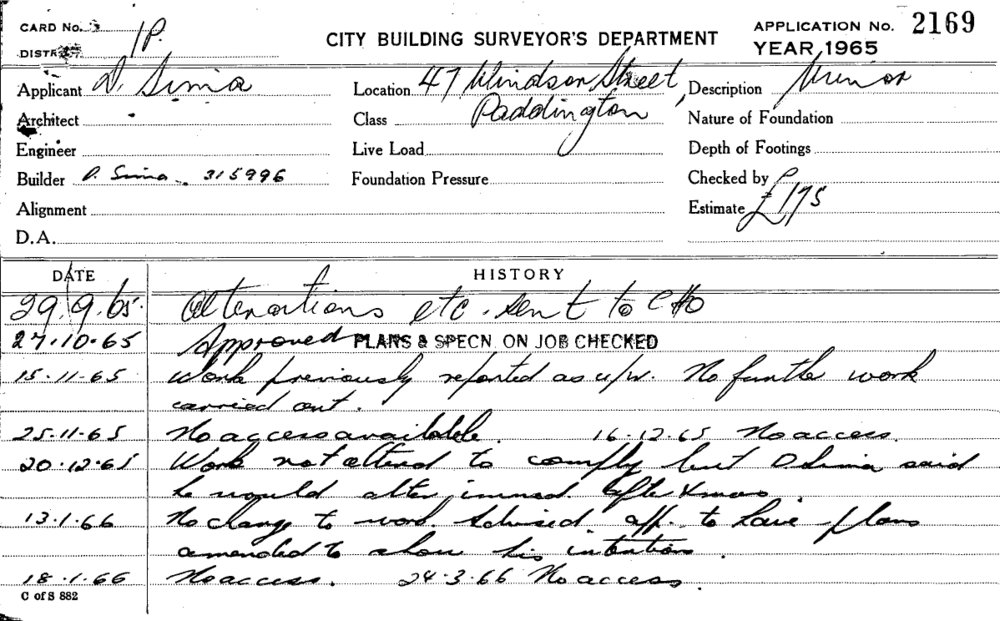 CARD No. 1P. APPLICATION No. 2169
DISTRICT CITY BUILDING SURVEYOR'S DEPARTMENT YEAR, 1965
Applicant D. Sima Location 47 Windsor Street, Description Minor
Architect Class Paddington Nature of Foundation
Engineer Live Load Depth of Footings
Builder D. Sima. 315996 Foundation Pressure Checked by P
Alignment Estimate £175
D.A.
DATE HISTORY
29.9.65. Alterations etc. sent to CHO
27.10.65 Approved PLANS & SPECN. ON JOB CHECKED
15.11.65 Work previously reported as u/w. No further work
carried out.
25.11.65 No access available. 16.12.65 No access.
20.12.65 Work not altered to comply but D Sima said
he would alter immed. after Xmas.
13.1.66 No change to work. Advised app. to have plans
amended to show his intention.
18.1.66 No access. 24.3.66 No access.
C of S 882